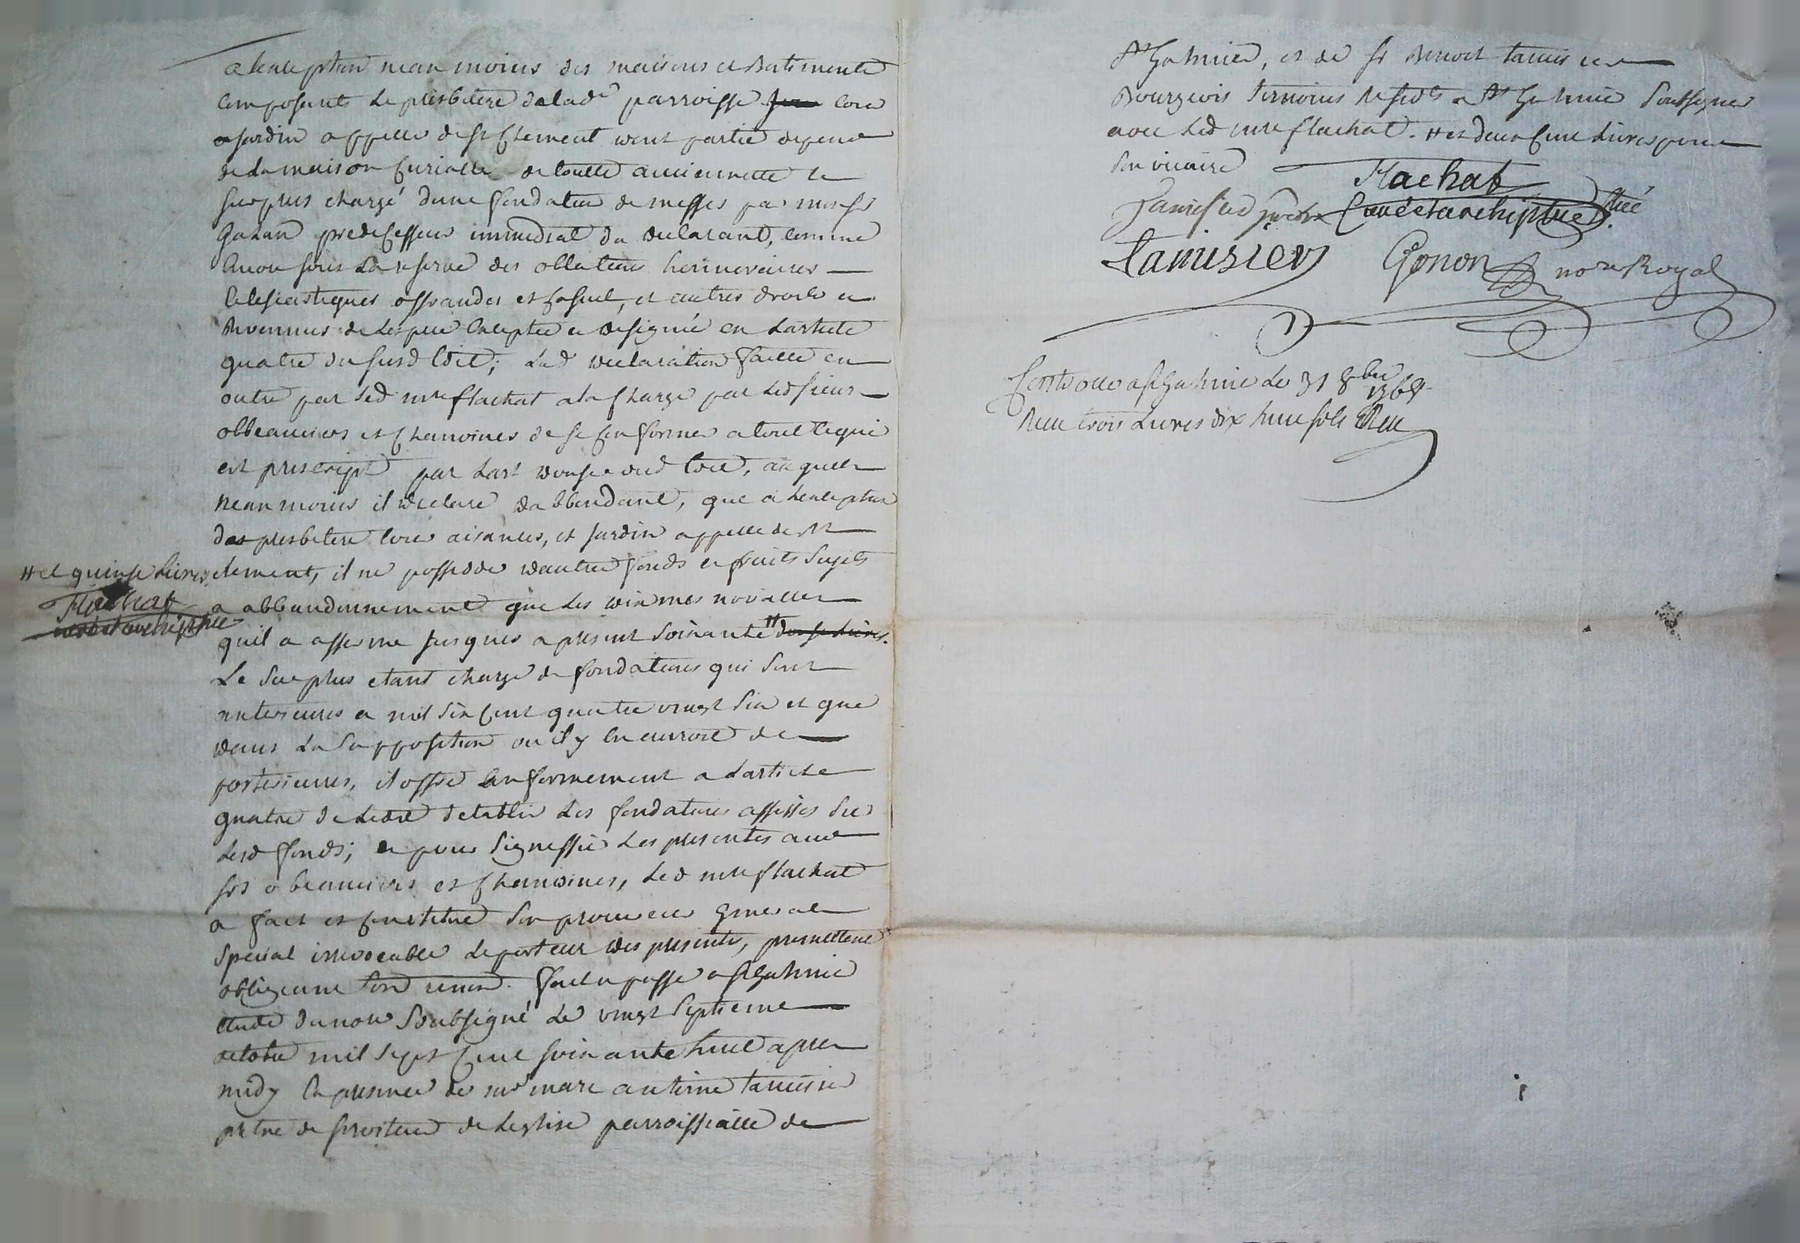 a lexception neanmoins des maisons et batiments
composants le presbitere de lad.e parroisse cour
et jardin appellé de st Clement dont partie depend
de la maison curialle de toutte ancienneté le
surplus chargé d'une fondation de messes par
predecesseur immediat du declarant, comme
aussi sous la reserve des oblations honnoraires
eclesiastiques offrandes et casuel, et autres droits et
revenus de lespece exceptée et designée en larticle
quatre du susd edit; lad declaration faitte en
outre par led mre flachat a la charge par lesd sieurs
obbeanciers et chanoines de se conformer a tout ce qui
est prescript par lart douse dud edit, auquels
neanmoins il declare dabbondant, que a lexception
des presbitere cour aisances, et jardin appellé de st
Clement, il ne possedde dautre fonds et fruits sujets
a abbandonnement que les dixmes novalles
quil a affermé jusques a present soixante # douse livres.
# et quinse livres
Flachat
curé et archiptre
Le surplus etant chargé de fondations qui sont
anterieures a mil six cent quatre vingt six et que
dans la supposition ou il y en auroit de
posterieures, il offre conformement a larticle
quatre de ledit detablir les fondations assises sur
lesd fonds; et pour signiffier les presentes aux
srs obeanciers et chanoines, led mre flachat
a fait et constitué son procureur general
special irrevocable le porteur des presentes, promettant
obligeant renon. fait et passé a st Galmier
etude du not.e soubsigné le vingt septieme
octobre mil sept cent soixante huit apres
midy en presence de mre marc antoine tamisier
pretre de servitude de leglise parroissialle de
st Galmier, et de sr Benoit tamisier
Bourgeois temoins residts a st Galmier soubsignes
avec led mre flachat. # et deux cent livres pour
son vicaire
Flachat
Tamisier ptre curé et archiptre
Tamisier Gonon nore Royal
Controllé a st Galmier le 31 8bre 1768.
Reçu trois livres dix huit sols